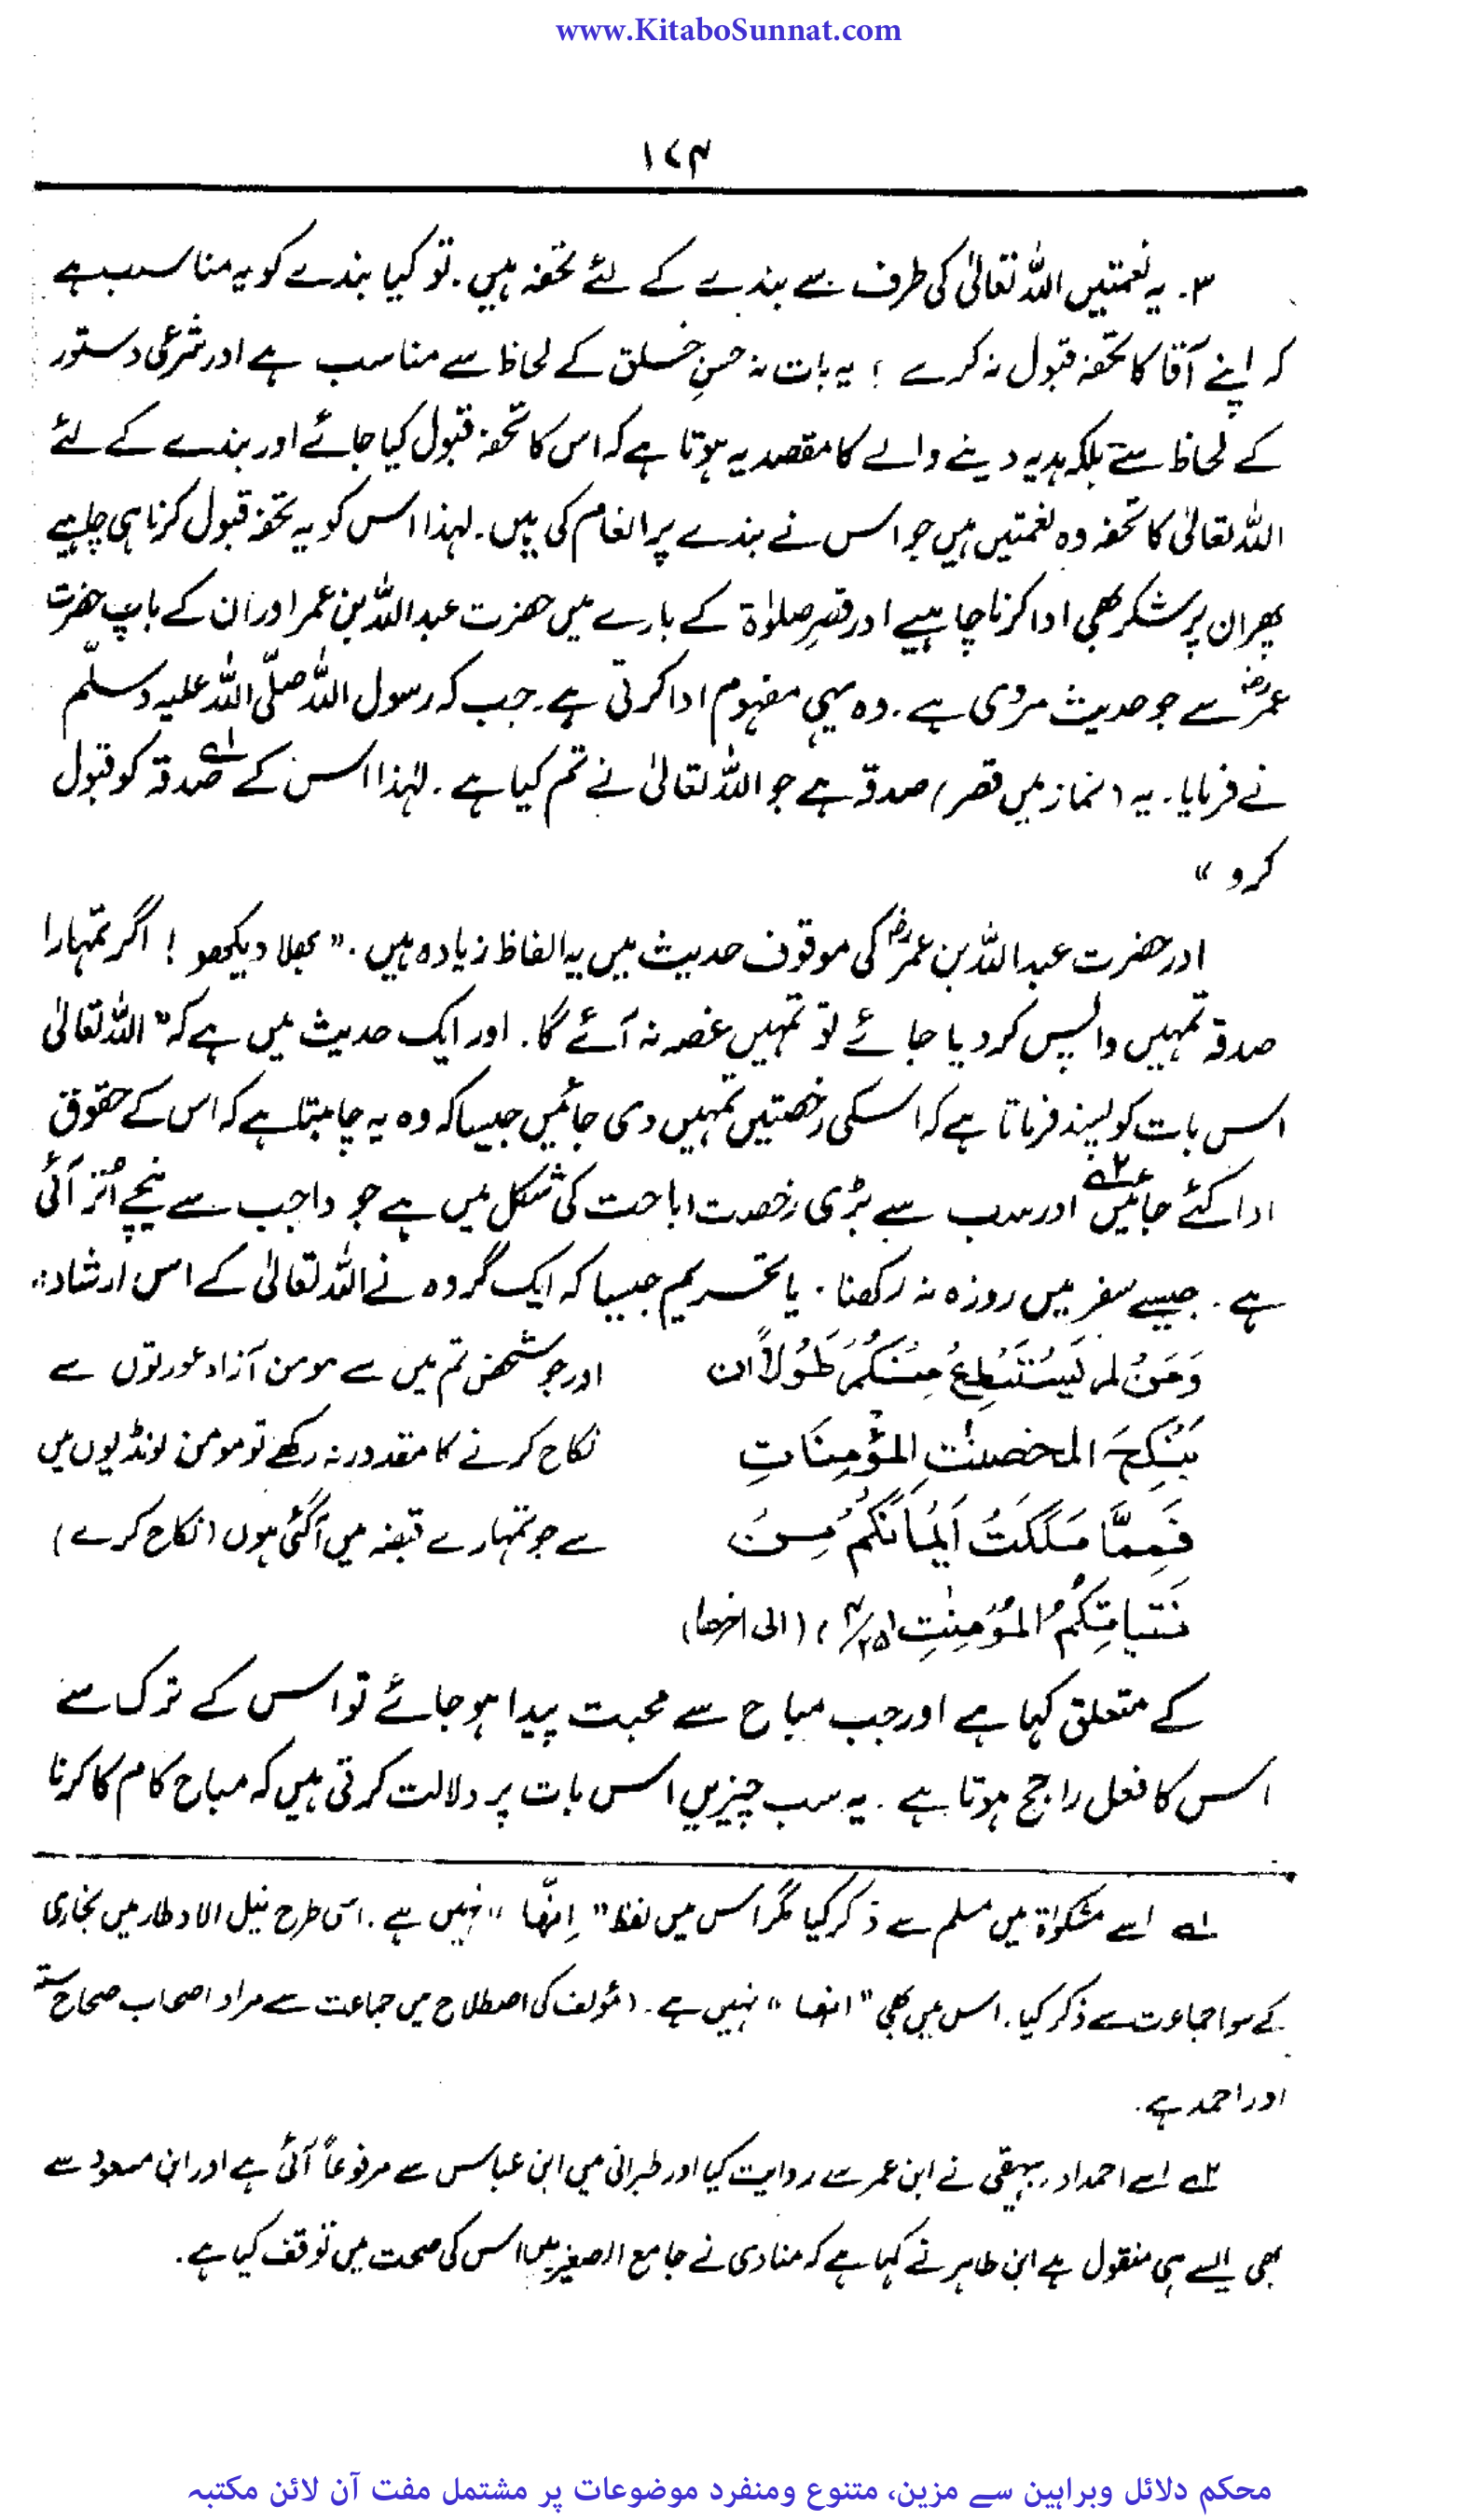 www.KitaboSunnat.com
۱۷۴
۳۔ یہ نعمتیں اللہ تعالیٰ کی طرف سے بندے کے لئے تحفہ ہیں۔ تو کیا بندے کو یہ مناسب ہے
کہ اپنے آقا کا تحفہ قبول نہ کرے ؛ یہ بات نہ حسنِ خلق کے لحاظ سے مناسب ہے اور نہ شرعی دستور
کے لحاظ سے بلکہ ہدیہ دینے والے کا مقصد یہ ہوتا ہے کہ اس کا تحفہ قبول کیا جائے اور بندے کے لئے
اللہ تعالیٰ کا تحفہ وہ نعمتیں ہیں جو اس نے بندے پر انعام کی ہیں۔ لہٰذا اس کو یہ تحفہ قبول کرنا ہی چاہیے
پھر ان پر شکر بھی ادا کرنا چاہیے اور قصرِ صلوٰۃ کے بارے میں حضرت عبداللہ بن عمر اور ان کے باپ حضرت
عمرؓ سے جو حدیث مروی ہے۔ وہ یہی مفہوم ادا کرتی ہے۔ جب کہ رسول اللہ صلّی اللہ علیہ وسلّم
نے فرمایا۔ یہ (نماز میں قصر) صدقہ ہے جو اللہ تعالیٰ نے تم کیا ہے۔ لہٰذا اس کے صدقہ کو قبول
کرو“ ۱ے
اور حضرت عبداللہ بن عمرؓ کی موقوف حدیث میں یہ الفاظ زیادہ ہیں۔ ”بھلا دیکھو ! اگر تمہارا
صدقہ تمہیں واپس کر دیا جائے تو تمہیں غصہ نہ آئے گا۔ اور ایک حدیث میں ہے کہ ”اللہ تعالیٰ
اس بات کو پسند فرماتا ہے کہ اسکی رخصتیں تمہیں دی جائیں جیسا کہ وہ یہ چاہتا ہے کہ اس کے حقوق
ادا کئے جائیں“ ۲ے اور سب سے بڑی رخصت اباحت کی شکل میں ہے جو واجب سے نیچے اُتر آئی
ہے۔ جیسے سفر میں روزہ نہ رکھنا۔ یا تحریم جیسا کہ ایک گروہ نے اللہ تعالیٰ کے اس ارشاد:۔
وَمَنْ لم یَسْتَطِعْ مِنْکُمْ طَوْلاً ان
اور جو شخص تم میں سے مومن آزاد عورتوں سے
یَنْکِحَ المحصنٰتِ المؤْمِنَاتِ
نکاح کرنے کا مقدور نہ رکھے تو مومن لونڈیوں میں
فَمِمَّا مَلَکَتْ اَیْمَانُکُمْ مِنْ
سے جو تمہارے قبضہ میں آگئی ہوں (نکاح کرے)
فَتَیاتِکُمُ المؤْمِنٰتِ (۴/۲۵) (الی اخرھا)
کے متعلق کہا ہے اور جب مباح سے محبت پیدا ہو جائے تو اس کے ترک سے
اس کا فعل راجح ہوتا ہے۔ یہ سب چیزیں اس بات پر دلالت کرتی ہیں کہ مباح کام کا کرنا
۱ے اسے مشکوٰۃ میں مسلم سے ذکر کیا مگر اس میں لفظ ”اِنّھا“ نہیں ہے۔ اسی طرح نیل الاوطار میں بخاری
کے سوا جماعت سے ذکر کیا۔ اس میں بھی ”انھا“ نہیں ہے۔ (مؤلف کی اصطلاح میں جماعت سے مراد اصحاب صحاح ستہ
اور احمد ہے۔
۲ے اسے احمد اور بیہقی نے ابن عمر سے روایت کیا اور طبرانی میں ابن عباس سے مرفوعاً آئی ہے اور ابن مسعود سے
بھی ایسے ہی منقول ہے ابن طاہر نے کہا ہے کہ منادی نے جامع الصغیر میں اس کی صحت میں توقف کیا ہے۔
محکم دلائل وبراہین سے مزین، متنوع ومنفرد موضوعات پر مشتمل مفت آن لائن مکتبہ